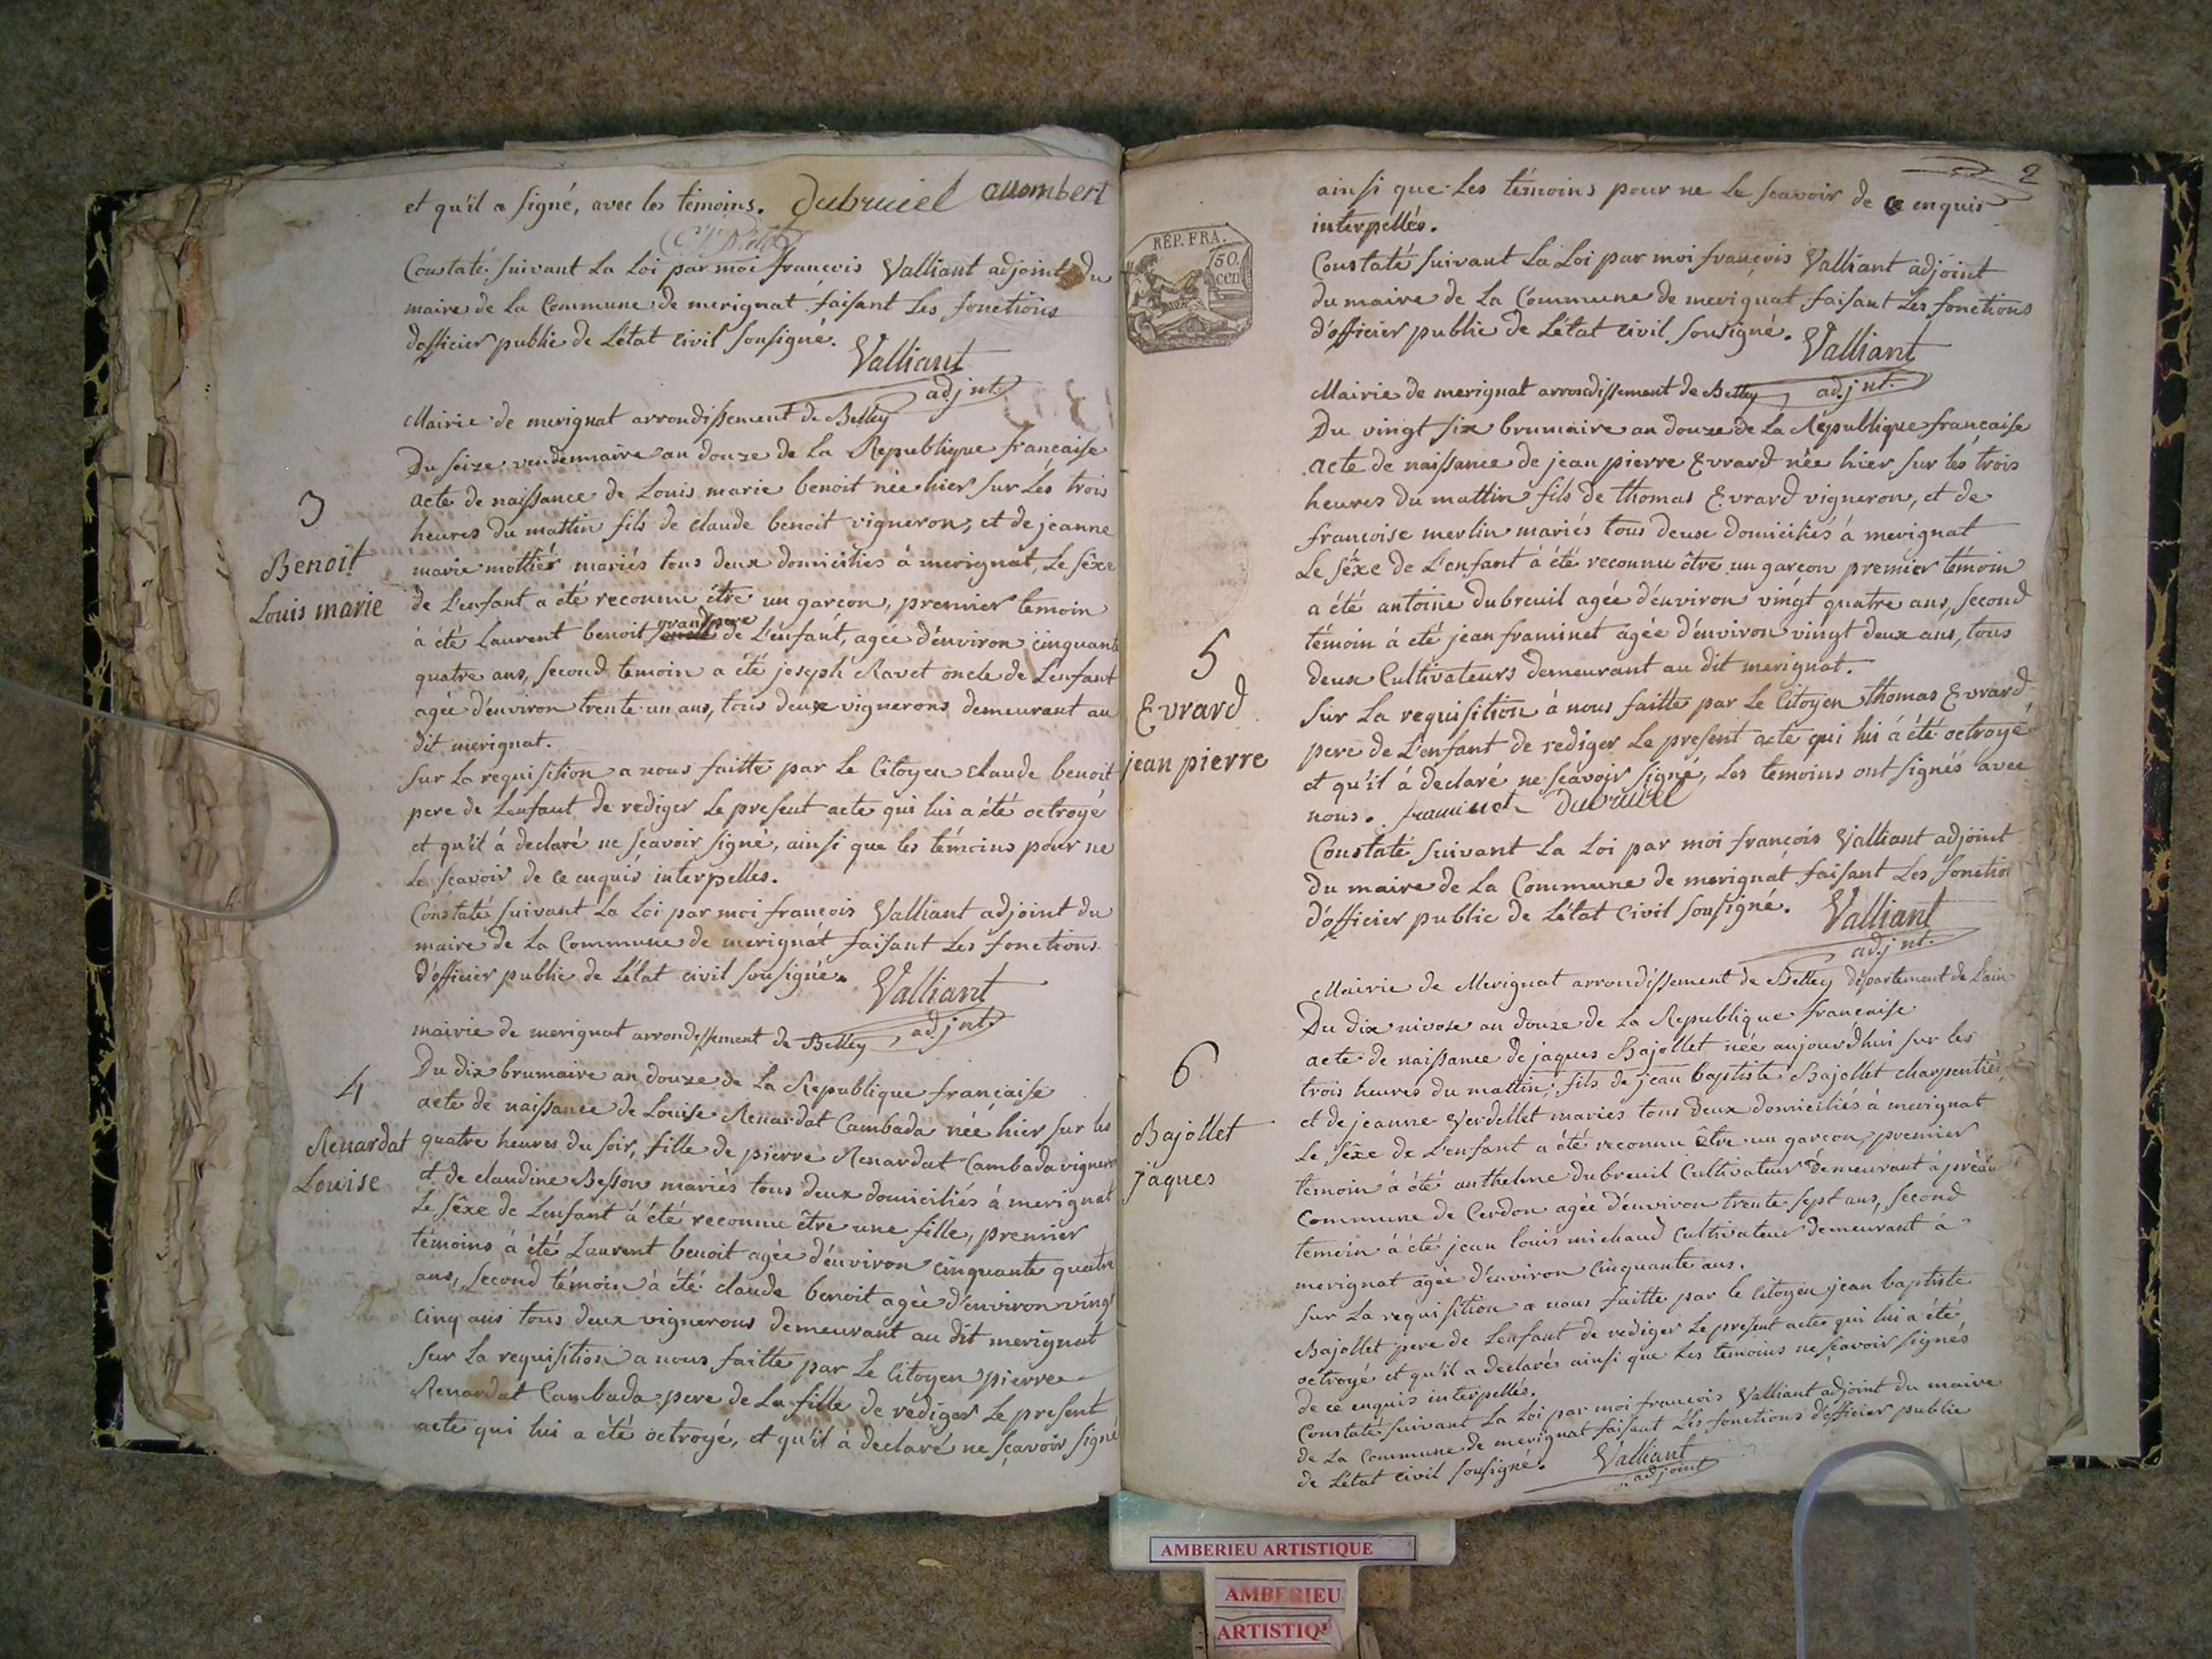 et qu'il a signé, avec les témoins. Dubruiel allombert
Constaté suivant La Loi par moi francois Valliant adjoint du
maire de La Commune de merignat faisant Les fonctions
d'officier public de L'état civil sousigné.
Valliant
adjnt.
Mairie de merignat arrondissement de Belley
Du seize vendemiaire an douze de La Republique francaise
3
Benoit
Louis marie
acte de naissance de Louis marie benoit née hier sur Les trois
heures du mattin fils de claude benoit vigneron, et de jeanne
marie mottier mariés tous deux domiciliés à merignat, Le sêxe
de L'enfant a été reconnu être un garcon, premier temoin
à été Laurent benoit grand pere de L'enfant, agée d'environ cinquante
quatre ans, second temoin a été joseph Ravet oncle de L'enfant
agée d'environ trente un ans, tous deux vignerons demeurant au
dit merignat.
sur La requisition a nous faitte par Le Citoyen claude benoit
pere de Lenfant de rediger Le present acte qui lui a été octroyé
et qu'il à declaré ne scavoir signé, ainsi que les témoins pour ne
Le scavoir de ce enquis interpelles.
Constaté suivant La Loi par moi francois Valliant adjoint du
maire de La Commune de merignat faisant Les fonctions
d'officier public de L'état civil sousigné.
Valliant
adjnt.
mairie de merignat arrondissement de Belley
Du dix brumaire an douze de La Republique francaise
4
Renardat
Louise
acte de naissance de Louise Renardat Cambada née hier sur les
quatre heures du soir, fille de pierre Renardat Cambada vigneron
et de claudine Besson mariés tous deux domiciliés à merignat
Le sêxe de Lenfant à été reconnu être une fille, premier
témoins à été Laurent benoit agée d'environ cinquante quatre
ans, second témoin à été claude benoit agée d'environ vingt
cinq ans tous deux vignerons demeurant au dit merignat
sur La requisition a nous faitte par Le Citoyen pierre
Renardat Cambada pere de La fille de rediger Le present
acte qui lui a été octroyé, et qu'il à declaré ne scavoir signé
2
ainsi que Les témoins pour ne Le scavoir de ce enquis
interpellés.
REP. FRA.
50.
cen
Constaté suivant La Loi par moi francois Valliant adjoint
du maire de La Commune de merignat faisant Les fonctions
d'officier public de L'état civil sousigné.
Valliant
adjnt.
Mairie de merignat arrondissement de Belley
Du vingt six brumaire an douze de La Republique francaise
acte de naissance de jean pierre Evrard née hier sur les trois
heures du mattin fils de thomas Evrard vigneron, et de
francoise merlin mariés tous deux domiciliés à merignat
Le sêxe de L'enfant à été reconnu être un garcon premier témoin
a été antoine dubreuil agée d'environ vingt quatre ans, second
témoin à été jean framinet agée d'environ vingt deux ans, tous
deux Cultivateurs demeurant au dit merignat.
5
Evrard
jean pierre
sur La requisition à nous faitte par Le Citoyen thomas Evrard
pere de L'enfant de rediger Le present acte qui lui à été octroyé
et qu'il à declaré ne scavoir signé, Les temoins ont signés avec
nous. framinet Dubruiel
Constaté suivant La Loi par moi francois Valliant adjoint
du maire de La Commune de merignat faisant Les fonctio
d'officier public de L'état Civil sousigné.
Valliant
adjnt.
Mairie de Merignat arrondissement de Belley département de Lain
Du dix nivose an douze de La Republique francaise
6
Bajollet
jaques
acte de naissance de jaques Bajollet née aujourdhui sur les
trois heures du mattin, fils de jean baptiste Bajollet charpentiér
et de jeanne Verdellet mariés tous deux domiciliés à merignat
Le sêxe de L'enfant a été reconnu être un garcon, premier
temoin à été anthelme dubreuil Cultivateur demeurant à préau
Commune de Cerdon agée d'environ trente sept ans, second
temoin à été jean louis michaud cultivateur demeurant à
merignat agée d'environ Cinquante ans.
sur La requisition a nous faitte par le Citoyen jean baptiste
Bajollet pere de Lenfant de rediger Le present acte qui lui a été
octroyé et qu'il a declarés ainsi que Les temoins ne scavoir signés
de ce enquis interpellés.
Constaté suivant La Loi par moi francois Valliant adjoint du maire
de La Commune de merignat faisant Les fonctions d'officier public
de L'état civil sousigné.
Valliant
adjoint
AMBERIEU ARTISTIQUE
AMBERIEU
ARTISTIQ